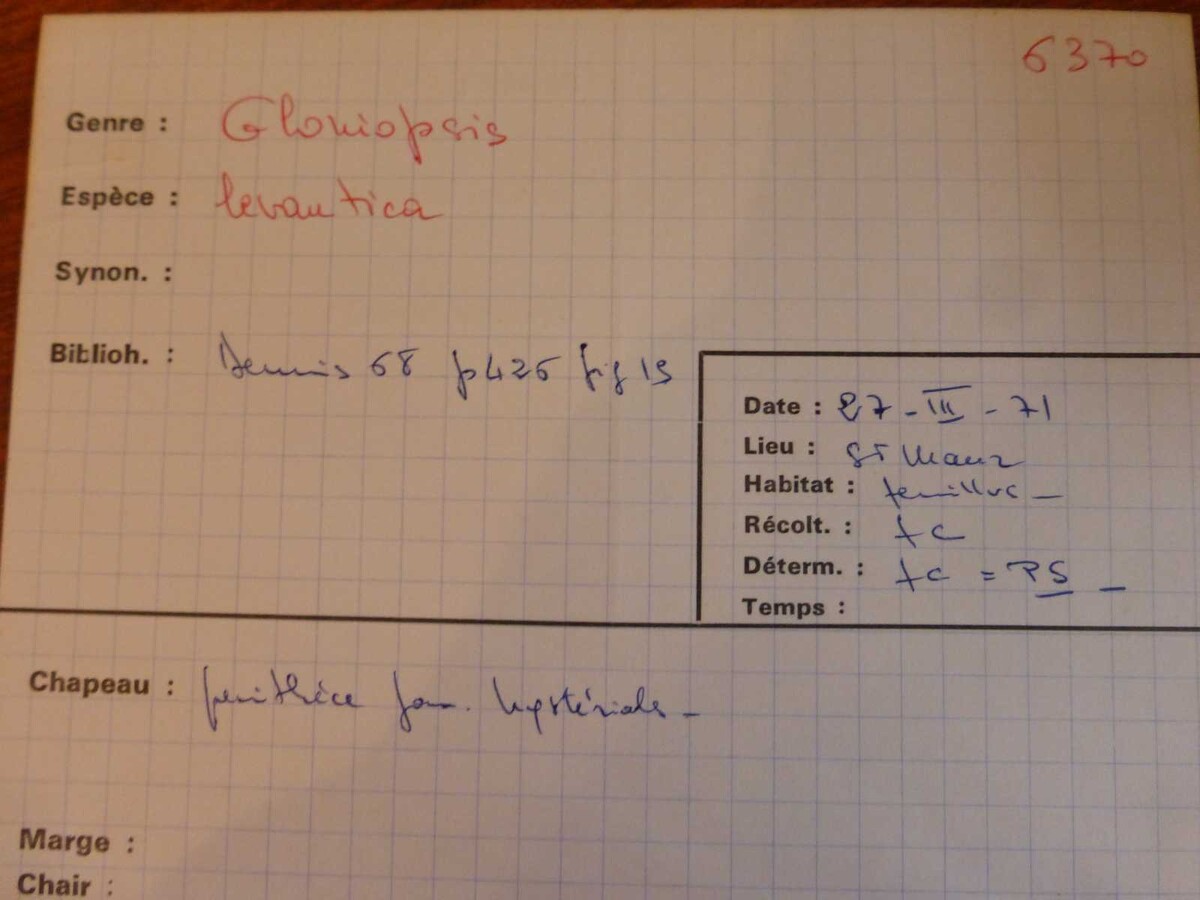 6370
Genre : Gloniopsis
Espèce : levantica
Synon. :
Biblioh. : Dennis 68 p425 fig 19
Date : 27-III-71
Lieu : St Maur
Habitat : feuillus -
Récolt. : fc
Déterm. : fc = PS -
Temps :
Chapeau : périthèce fam. hystériale -
Marge :
Chair :